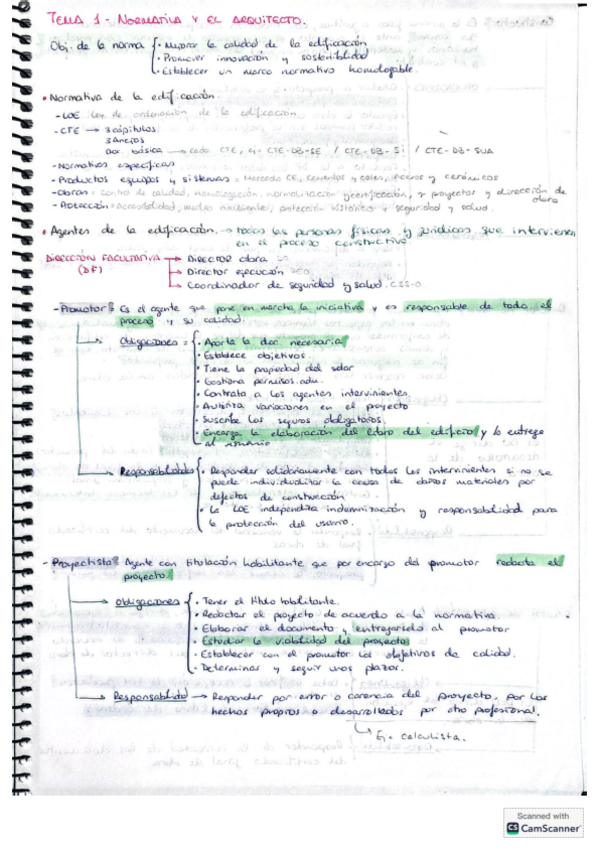 TEMA 1 - NORMATIVA Y EL ARQUITECTO.
Obj. de la norma
· Mejorar la calidad de la edificación
· Promover innovación y sostenibilidad
· Establecer un marco normativo homologable.
• Normativa de la edificación.
- LOE Ley de ordenación de la edificación
- CTE → 3 capítulos
3 Anejos
Doc. básica → cada CTE, Ej: CTE-DB-SE / CTE-DB-SI / CTE-DB-SUA
- Normativas específicas
- Productos equipos y sistemas = Marcado CE, cementos y cales, aceros y cerámicos
- Obras = Control de calidad, homologación, normalización y certificación, y proyectos y dirección de obra
- Protección = Accesibilidad, medio ambiente, protección histórica y seguridad y salud.
• Agentes de la edificación. → todas las personas físicas y jurídicas que intervienen
en el proceso constructivo
DIRECCIÓN FACULTATIVA (DF)
→ Director obra
→ Director ejecución
→ Coordinador de seguridad y salud. CSS-O
- Promotor: Es el agente que pone en marcha la iniciativa y es responsable de todo el
proceso y su calidad.
→ Obligaciones =
· Aporta la doc. necesaria
· Establece objetivos
· Tiene la propiedad del solar
· Gestiona permisos adm.
· Contrata a los agentes intervinientes
· Autoriza variaciones en el proyecto
· Suscribe los seguros obligatorios.
· Encarga la elaboración del libro del edificio y lo entrega
al usuario
→ Responsabilidades
· Responder solidariamente con todos los intervinientes si no se
puede individualizar la causa de daños materiales por
defectos de construcción
· La LOE independiza indemnización y responsabilidad para
la protección del usuario.
- Proyectista: Agente con titulación habilitante que por encargo del promotor redacta el
proyecto.
→ Obligaciones
· Tener el título habilitante.
· Redactar el proyecto de acuerdo a la normativa.
· Elaborar el documento y entregárselo al promotor
· Estudiar la viabilidad del proyecto
· Establecer con el promotor los objetivos de calidad.
· Determinar y seguir unos plazos.
→ Responsabilidad → Responder por error o carencia del proyecto, por los
hechos propios o desarrollados por otro profesional.
Ej = calculista.
Scanned with
CS CamScanner